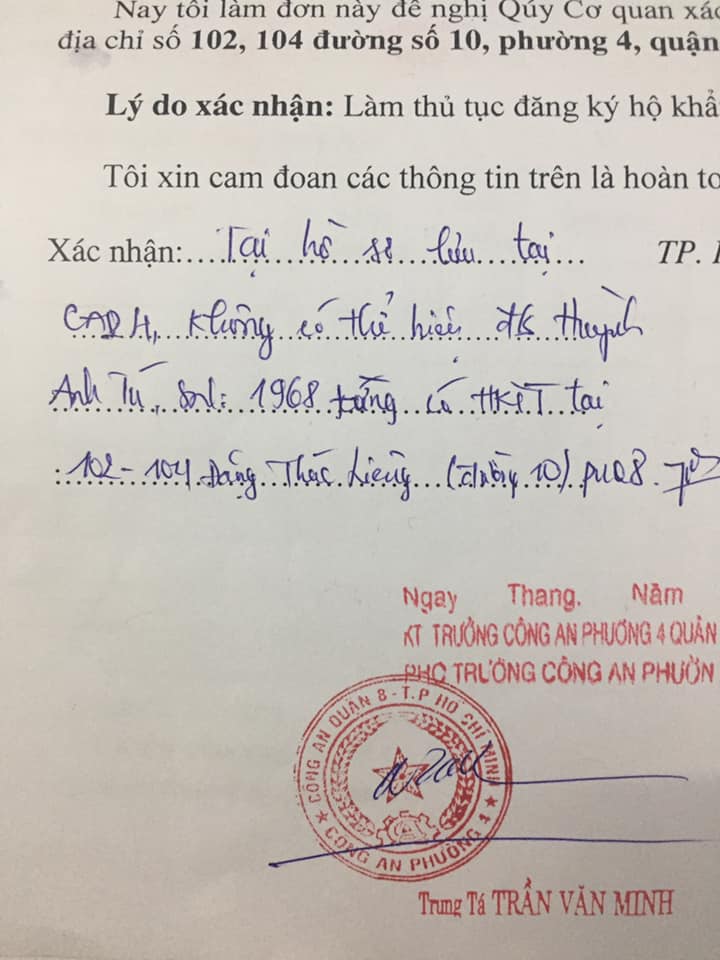 Nay tôi làm đơn này đề nghị Qúy Cơ quan xác
địa chỉ số 102, 104 đường số 10, phường 4, quận
Lý do xác nhận: Làm thủ tục đăng ký hộ khẩ
Tôi xin cam đoan các thông tin trên là hoàn to
Xác nhận:....Tại hồ sơ lưu tại... TP.
CAQH, không có thể hiện đ/s Huỳnh
Anh Tú, Snl: 1968 từng có HKTT tại
102-104 Dương Thác Liêng (Đường 10) P4Q8
Ngay Thang. Năm
KT TRƯỞNG CÔNG AN PHƯỜNG 4 QUẬN
PHÓ TRƯỞNG CÔNG AN PHƯỜN
CÔNG AN QUẬN 8 - T.P HỒ CHÍ MINH
CÔNG AN PHƯỜNG 4
Trung Tá TRẦN VĂN MINH